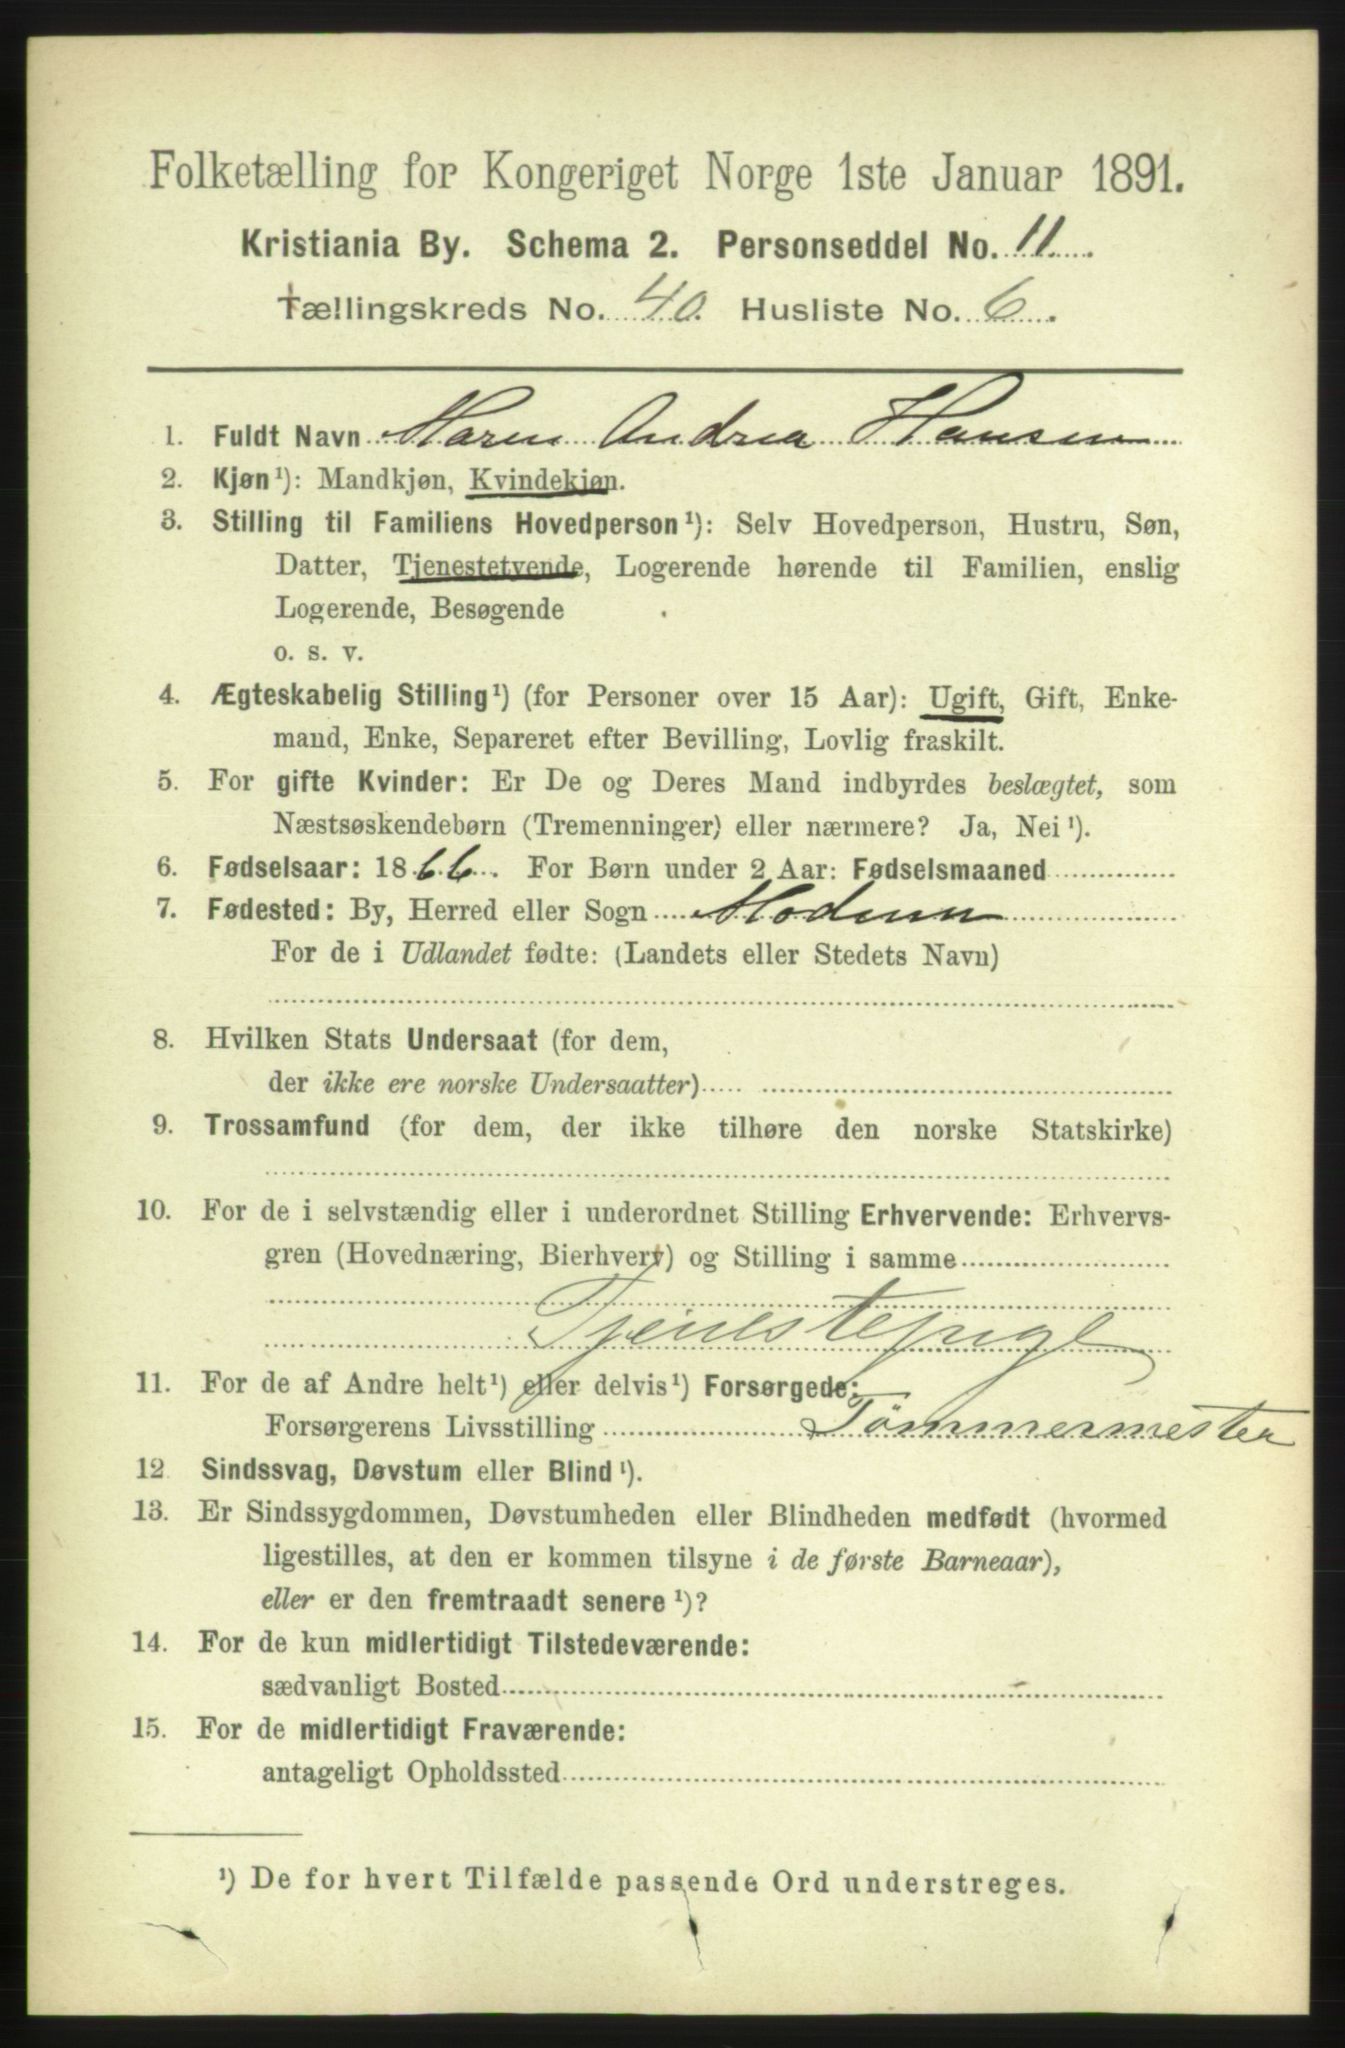 Folketælling for Kongeriget Norge 1ste Januar 1891.
Kristiania By. Schema 2. Personseddel No. 11.
Tællingskreds No. 40. Husliste No. 6.
1. Fuldt Navn Maren Andrea Hansen
2. Kjøn¹): Mandkjøn, Kvindekjøn.
3. Stilling til Familiens Hovedperson¹): Selv Hovedperson, Hustru, Søn,
Datter, Tjenestetyende, Logerende hørende til Familien, enslig
Logerende, Besøgende
o. s. v.
4. Ægteskabelig Stilling¹) (for Personer over 15 Aar): Ugift, Gift, Enke-
mand, Enke, Separeret efter Bevilling, Lovlig fraskilt.
5. For gifte Kvinder: Er De og Deres Mand indbyrdes beslægtet, som
Næstsøskendebørn (Tremenninger) eller nærmere? Ja, Nei¹).
6. Fødselsaar: 1866. For Børn under 2 Aar: Fødselsmaaned
7. Fødested: By, Herred eller Sogn Modum
For de i Udlandet fødte: (Landets eller Stedets Navn)
8. Hvilken Stats Undersaat (for dem,
der ikke ere norske Undersaatter)
9. Trossamfund (for dem, der ikke tilhøre den norske Statskirke)
10. For de i selvstændig eller i underordnet Stilling Erhvervende: Erhvervs-
gren (Hovednæring, Bierhverv) og Stilling i samme
Tjenestepige
11. For de af Andre helt¹) eller delvis¹) Forsørgede:
Forsørgerens Livsstilling Tømmermester
12 Sindssvag, Døvstum eller Blind¹).
13. Er Sindssygdommen, Døvstumheden eller Blindheden medfødt (hvormed
ligestilles, at den er kommen tilsyne i de første Barneaar),
eller er den fremtraadt senere¹)?
14. For de kun midlertidigt Tilstedeværende:
sædvanligt Bosted
15. For de midlertidigt Fraværende:
antageligt Opholdssted
¹) De for hvert Tilfælde passende Ord understreges.